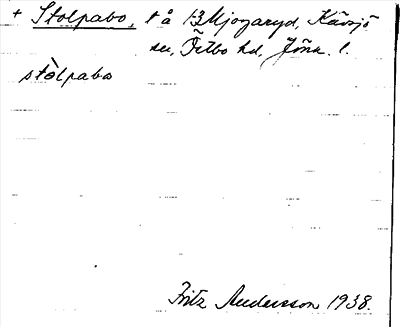 + Stolpabo, t å 13 Mjogaryd, Kävsjö
sn, Ö̃stbo hd, Jönk. l.
stòlpabo
Fritz Andersson 1938.